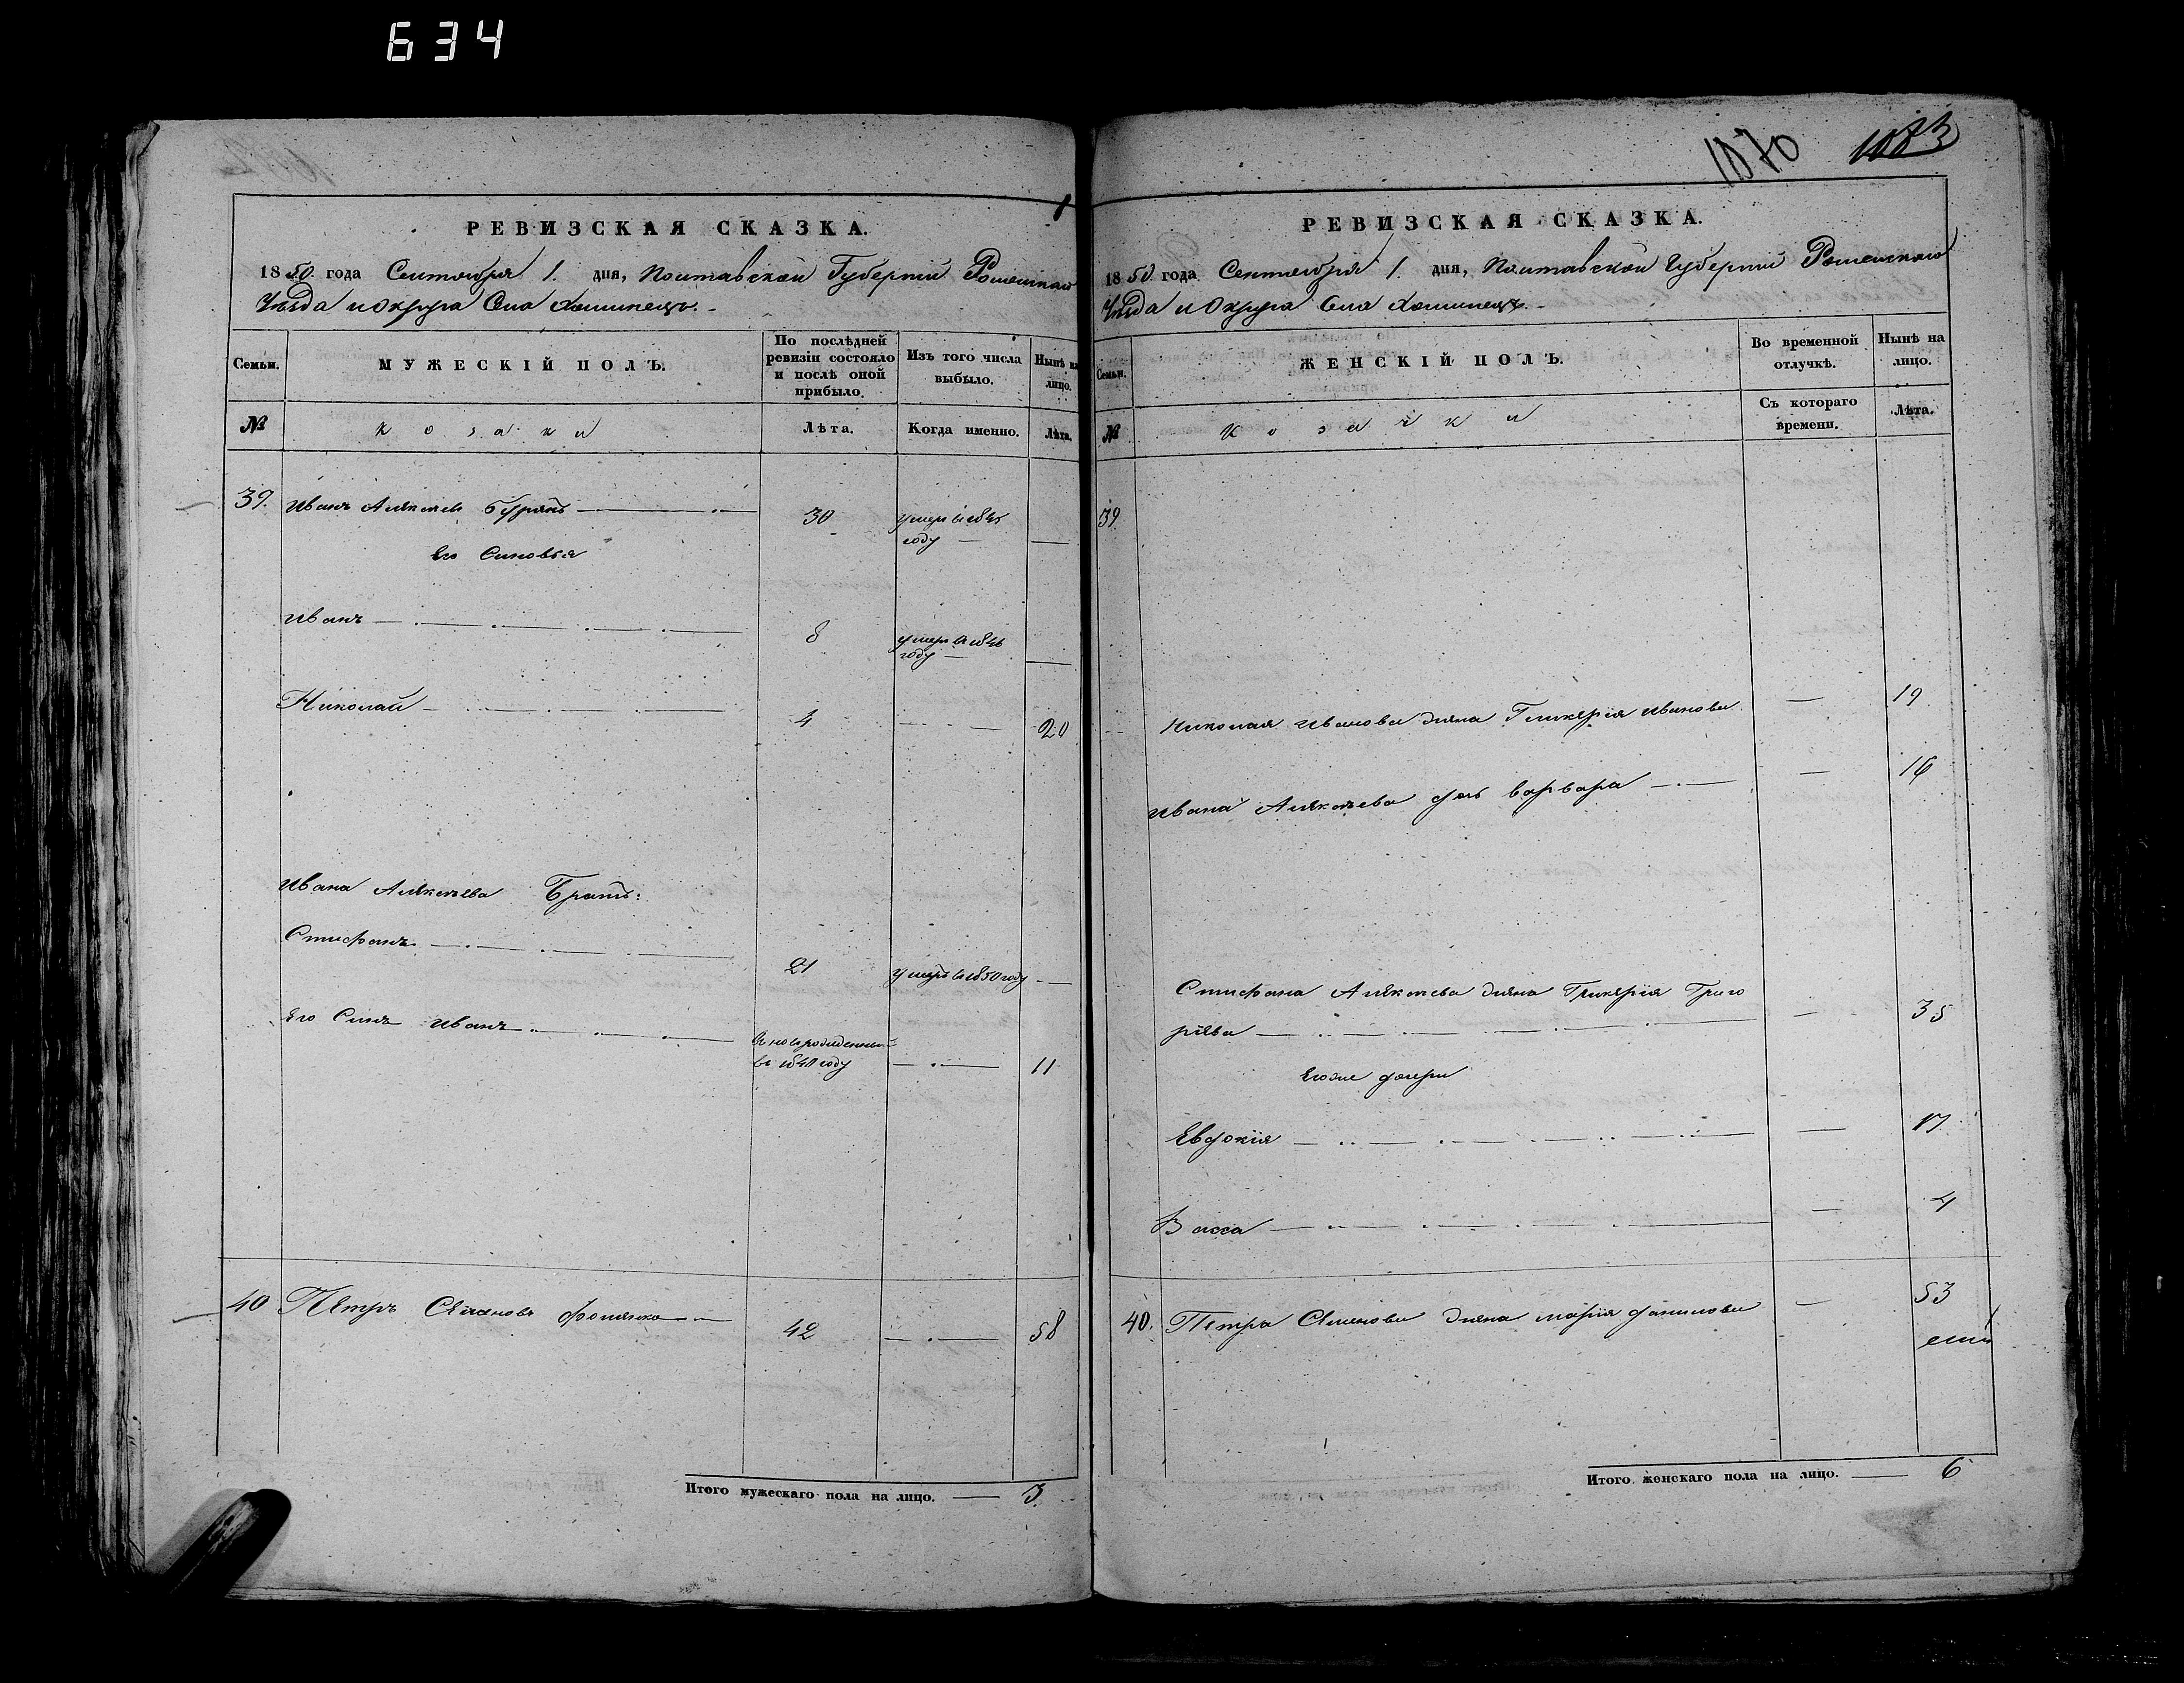 634
РЕВИЗСКАЯ СКАЗКА.
1850 года Сентября 1. дня, Полтавской Губерніи Роменскаго
Уѣзда и Округа Села
Семьи.
МУЖЕСКІЙ ПОЛЪ.
По послѣдней ревизіи состояло и послѣ оной прибыло.
Изъ того числа выбыло.
Нынѣ на лицо.
№
Козаки
Лѣта.
Когда именно.
Лѣта.
39. Иванъ Алексѣевъ 30 умеръ в
году —
Его Синовья
Иванъ 8 умеръ в 1846
году —
Николай 4 — 20
Ивана Алексѣева Братъ:
Стефанъ 21 умеръ в 1850 году —
Его Синъ Иванъ новорожденный
в году — 11
40 Петръ Семеновъ 42 — 58
Итого мужескаго пола на лицо. — 3
1070 1083
РЕВИЗСКАЯ СКАЗКА.
1850 года Сентября 1. дня, Полтавской Губерніи Роменскаго
Уѣзда и Округа Села
Семьи.
ЖЕНСКІЙ ПОЛЪ.
Во временной отлучкѣ.
Нынѣ на лицо.
№
Козачки
Съ котораго времени.
Лѣта.
39
Николая Иванова жена Гликерія Иванова — 19
Ивана Алексѣева дочь Варвара — 16
Стефана Алексѣева жена Гликерія Григо
рiева — 35
Егоже дочери
Евдокія — 17
Васса — 4
40. Петра Семенова жена Марія Данилова — 53
Итого женскаго пола на лицо. — 6